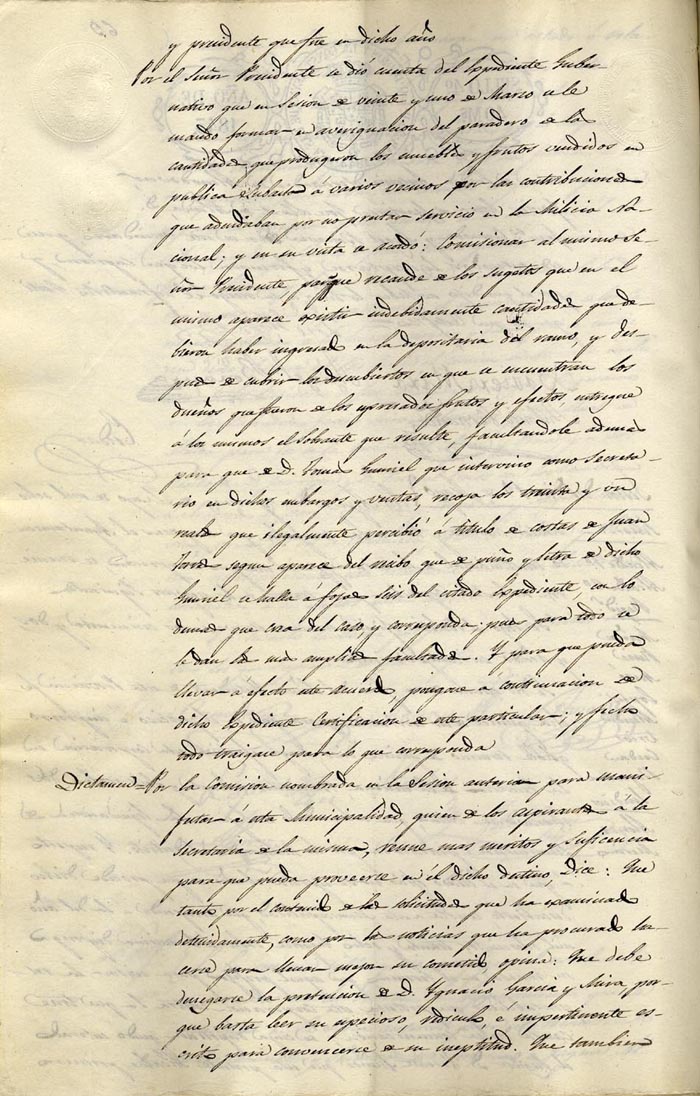 y presidente que fue en dicho año
Por el Señor Presidente se dió cuenta del Espediente Guber
nativo que en Sesion de veinte y uno de Marzo se le
mandó formar en averiguacion del paradero de las
cantidades que produgeron los muebles y frutos vendidos en
publica subasta á varios vecinos por las contribuciones
que adeudaban por no prestar servicio en la Milicia Na-
cional; y en su vista se acordó: Comisionar al mismo Se-
ñor Presidente, para que recaude de los sugetos que en el
mismo aparece existir indebidamente cantidades que de-
bieron haber ingresado en la depositaria del ramo, y des-
pues de cubrir los descubiertos en que se encuentran los
dueños que fueron de los espresados frutos y efectos, entregue
á los mismos el sobrante que resulte, facultandole ademas
para que de D. Tomas Gumiel que intervino como Secreta-
rio en dichos embargos y ventas, recoja los treinta y un
reales que ilegalmente percibió á titulo de costas de Juan
segun aparece del recibo que de puño y letra de dicho
Gumiel se halla á fojas seis del citado Espediente, con lo
demas que crea del caso, y corresponda; pues para todo se
le dan las mas amplias facultades. Y para que pueda
llevar á efecto este acuerdo, pongase á continuacion de
dicho Espediente Certificacion de este particular; y fecho
todo traigase para lo que corresponda
Dictamen = Por la Comision nombrada en la Sesion anterior para mani-
festar á esta Municipalidad, quien de los aspirantes á la
Secretaria de la misma, reune mas meritos y suficencia
para que pueda proveerse en él dicho destino, Dice: Que
tanto por el contenido de las solicitudes que ha examinado
detenidamente, como por las noticias que ha procurado ha-
cerse para llevar mejor su cometido opina: Que debe
denegarse la pretension de D. Ygnacio Garcia y Mira, por-
que basta leer su espacioso, ridiculo, e impertinente es-
crito para convencerse de su ineptitud. Que tambien